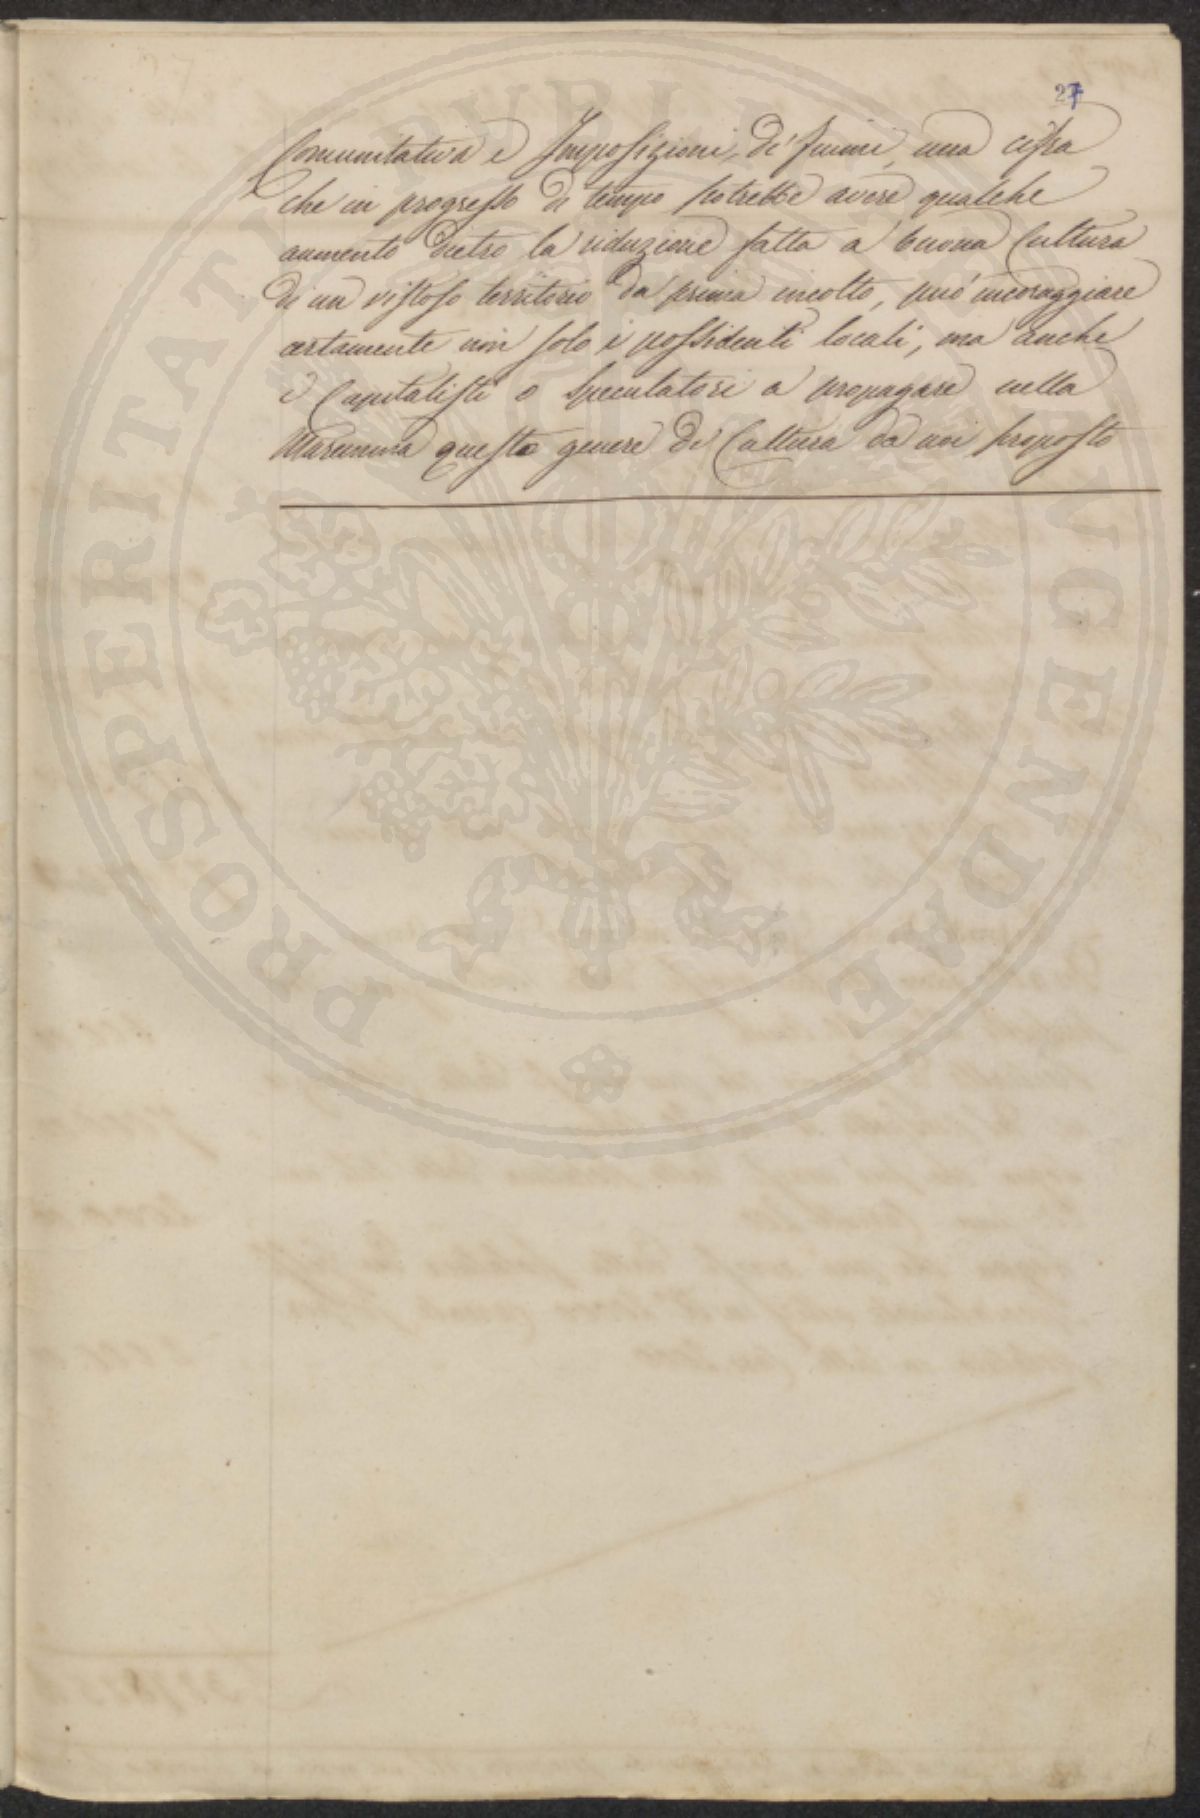 27
Comunitativa e Imposizioni, de' fiumi, una cifra
che in progresso di tempo potrebbe avere qualche
aumento dietro la riduzione fatta a buona Cultura
di un vistoso territorio da prima incolto, può incoraggiare
certamente non solo i possidenti locali, ma anche
i Capitalisti o Speculatori a propagare nella
Maremma questo genere di Cultura da noi proposto
PROSPERITATI PUBLICAE AUGENDAE